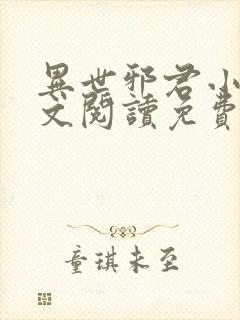 異世邪君小
文閱讀免費
童琪未至